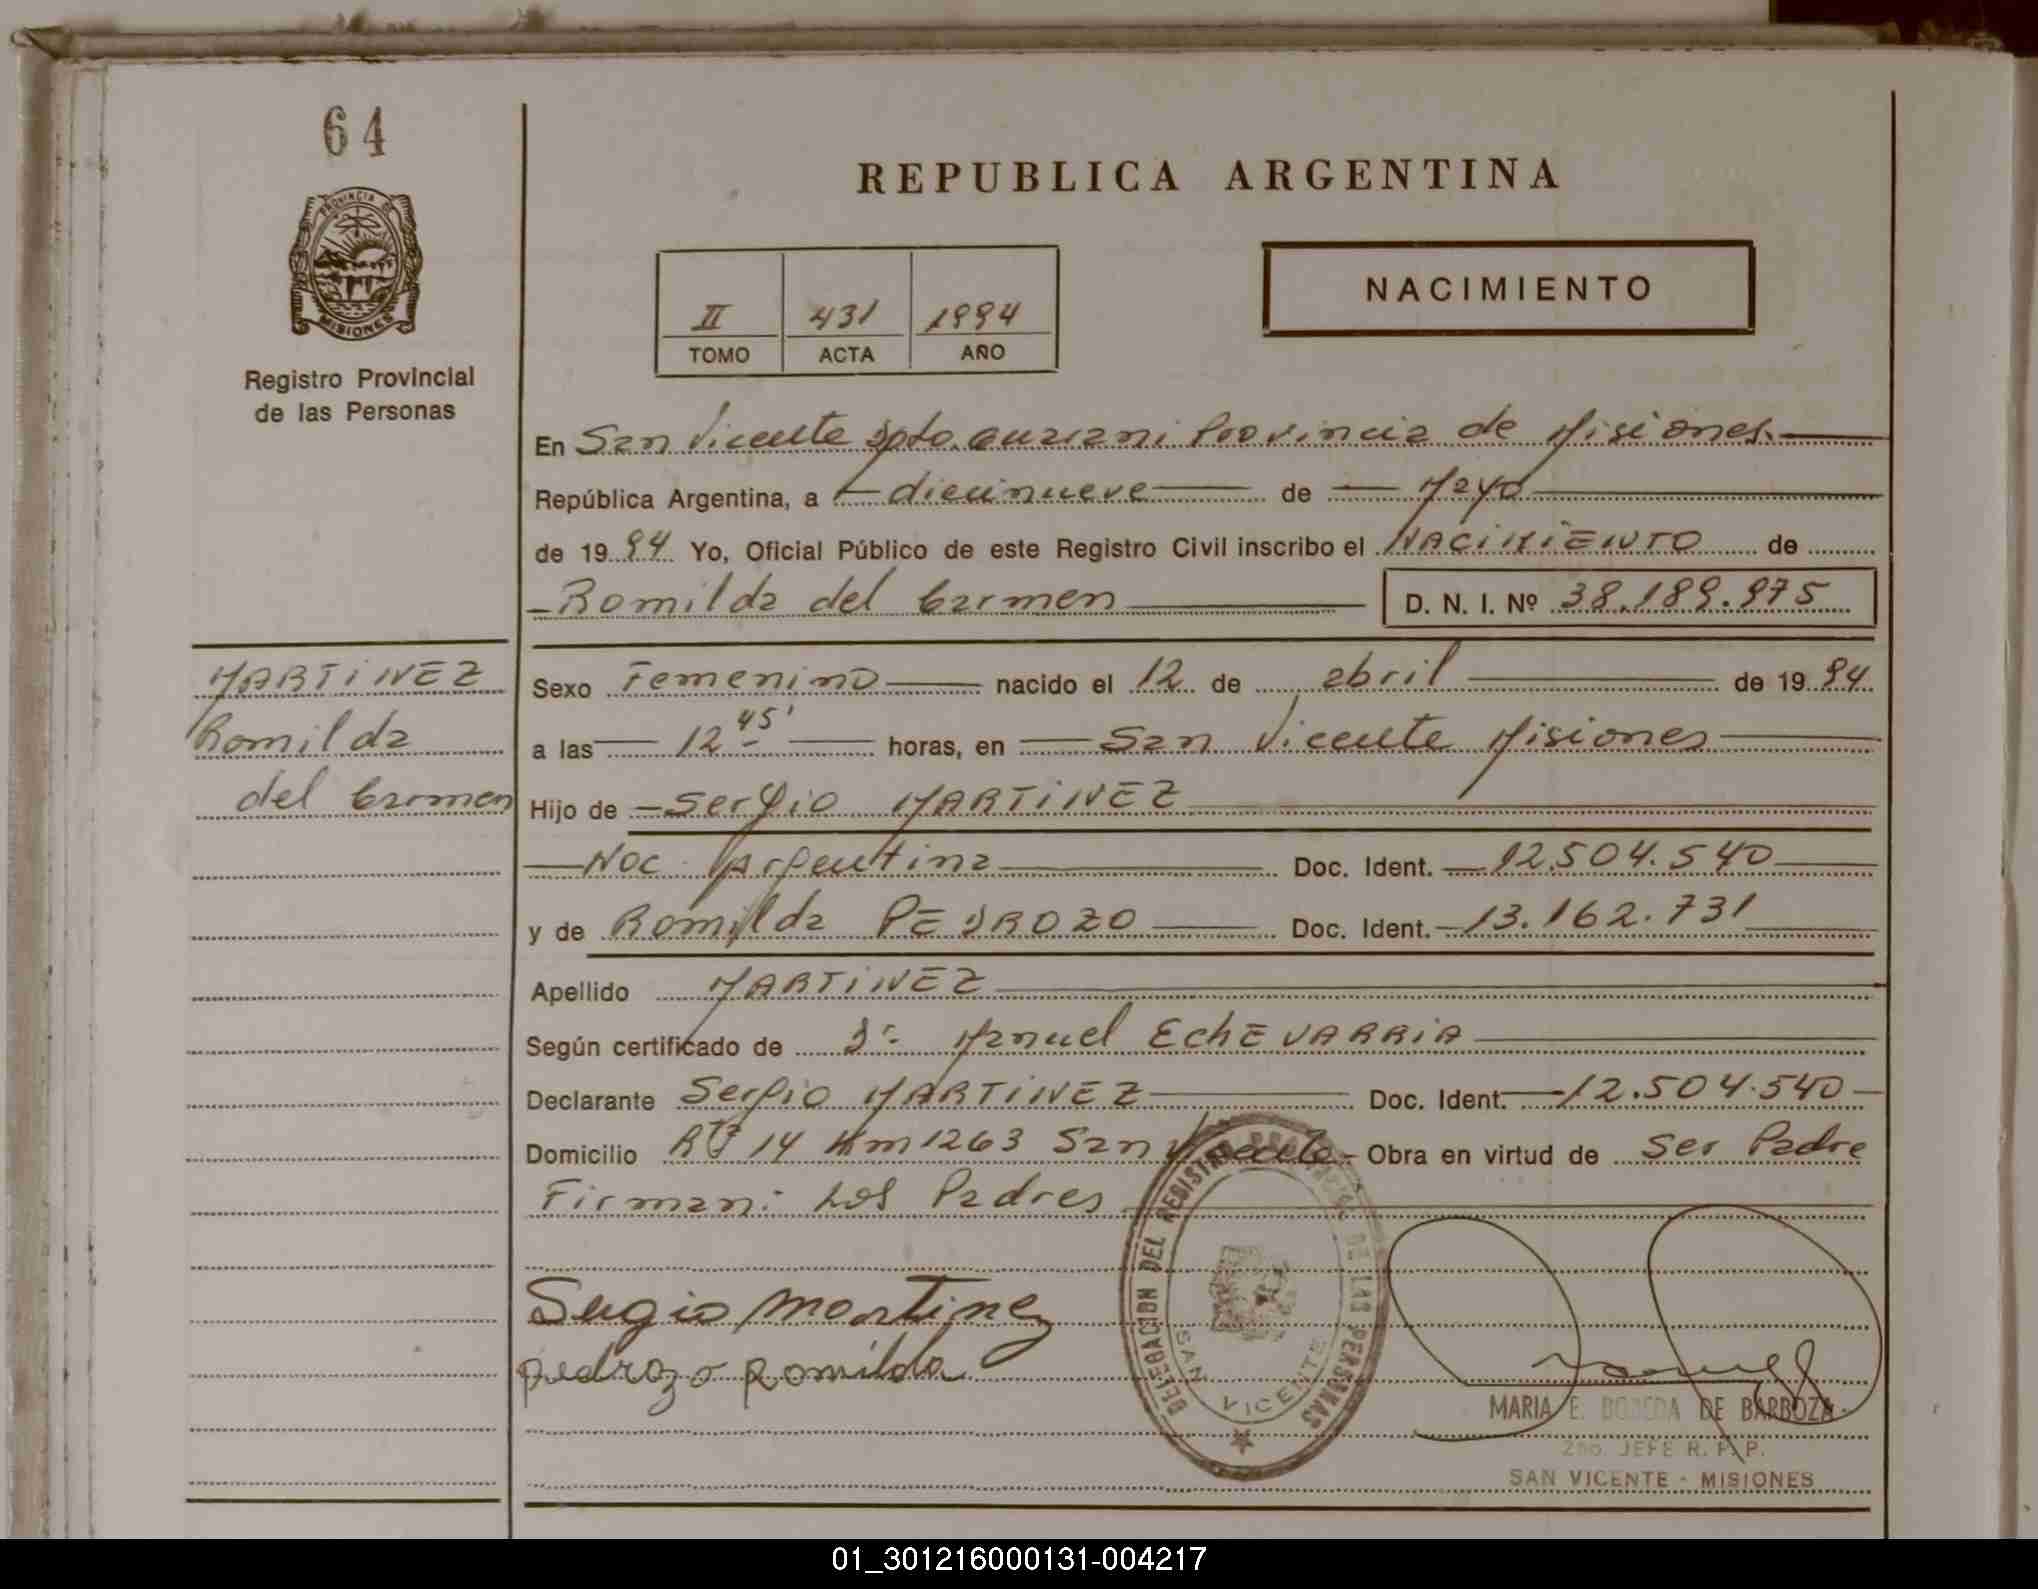 64
REPUBLICA ARGENTINA
PROVINCIA DE
MISIONES
Registro Provincial
de las Personas
NACIMIENTO
II 431 1994
TOMO ACTA AÑO
En San Vicente Dpto. Guarani Provincia de Misiones.
República Argentina, a diecinueve de Mayo
de 1994 Yo, Oficial Público de este Registro Civil inscribo el NACIMIENTO de
Romilda del Carmen D. N. I. Nº 38.189.975
MARTINEZ
Romilda
del Carmen
Sexo Femenino nacido el 12 de abril de 1994
a las 12 45' horas, en San Vicente Misiones
Hijo de Sergio MARTINEZ
Nac. Argentina Doc. Ident. 12.504.540
y de Romilda PEDROZO Doc. Ident. 13.162.731
Apellido MARTINEZ
Según certificado de Dr. Manuel EchEVARRiA
Declarante Sergio MARTINEZ Doc. Ident. 12.504.540
Domicilio 14 Km 1263 San Vicente Obra en virtud de Ser Padre
Firman: Los Padres
Sergio martinez
pedrozo romilda
DELEGACION DEL REGISTRO PROVINCIAL DE LAS PERSONAS
SAN VICENTE
MARIA E. DE BARBOZA
2do. JEFE R. P. P.
SAN VICENTE - MISIONES
01_301216000131-004217